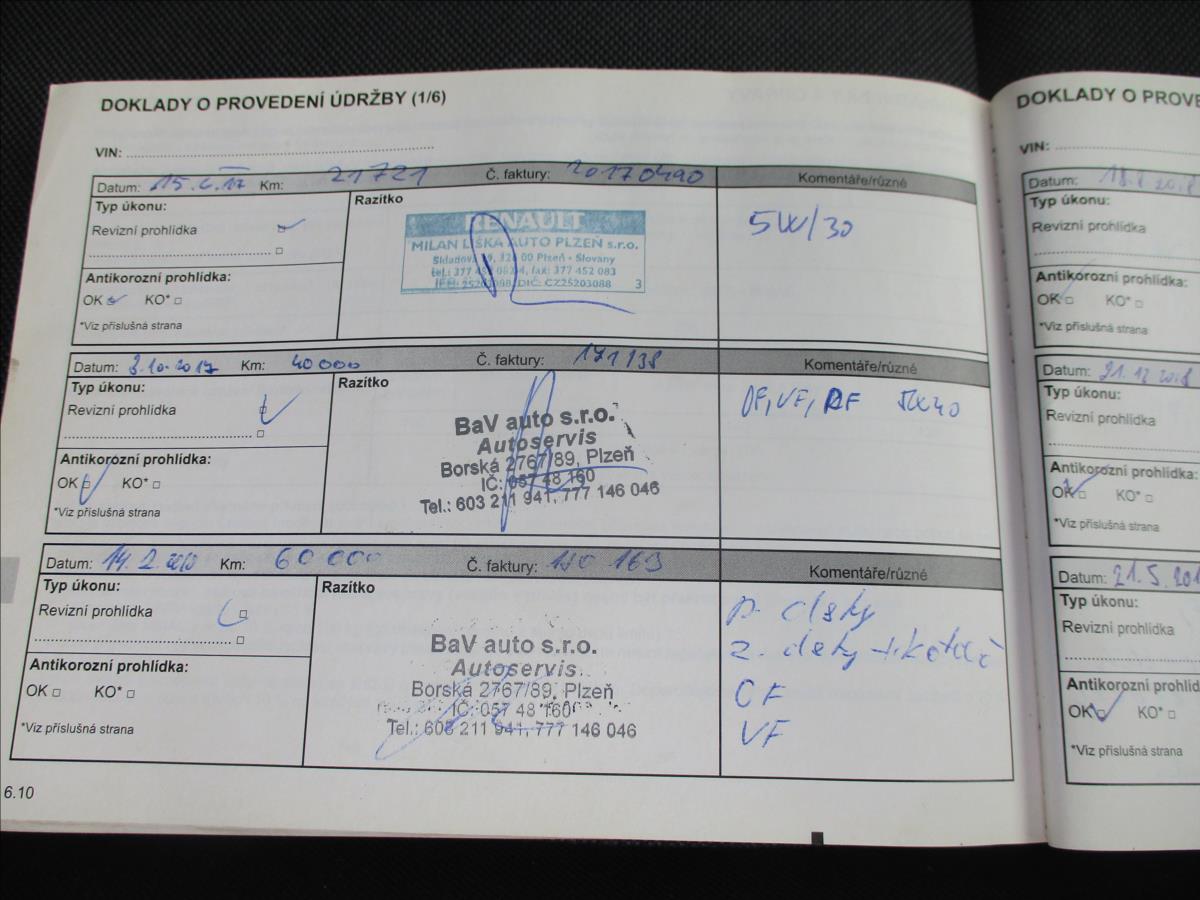 DOKLADY O PROVEDENÍ ÚDRŽBY (1/6)
VIN:
Datum: 15.6.17 Km: 21721 Č. faktury: 20170490 Komentáře/různé
Typ úkonu:
Revizní prohlídka
Antikorozní prohlídka:
OK KO*
*Viz příslušná strana
Razítko
RENAULT
MILAN LIŠKA AUTO PLZEŇ s.r.o.
Skladová 19, 326 00 Plzeň - Slovany
fax: 377 452 083
DIČ: CZ25203088 3
5W/30
Datum: 3.10.2017 Km: 40000 Č. faktury: 171138 Komentáře/různé
Typ úkonu:
Revizní prohlídka
Antikorozní prohlídka:
OK KO*
*Viz příslušná strana
Razítko
BaV auto s.r.o.
Autoservis
Borská 2767/89, Plzeň
IČ: 057 48 160
Tel.: 603 211 941, 777 146 046
VF,
Datum: 14.2. Km: 60000 Č. faktury: Komentáře/různé
Typ úkonu:
Revizní prohlídka
Antikorozní prohlídka:
OK KO*
*Viz příslušná strana
Razítko
BaV auto s.r.o.
Autoservis
Borská 2767/89, Plzeň
IČ: 057 48 160
Tel.: 603 211 941, 777 146 046
p. desky
z. desky + kotouč
OF
VF
6.10
DOKLADY O PROVE
VIN:
Datum: 2018
Typ úkonu:
Revizní prohlídka
Antikorozní prohlídka:
OK KO*
*Viz příslušná strana
Datum: 21.12.2018
Typ úkonu:
Revizní prohlídka
Antikorozní prohlídka:
OK KO*
*Viz příslušná strana
Datum: 21.5.201
Typ úkonu:
Revizní prohlídka
Antikorozní prohlíd
OK KO*
*Viz příslušná strana